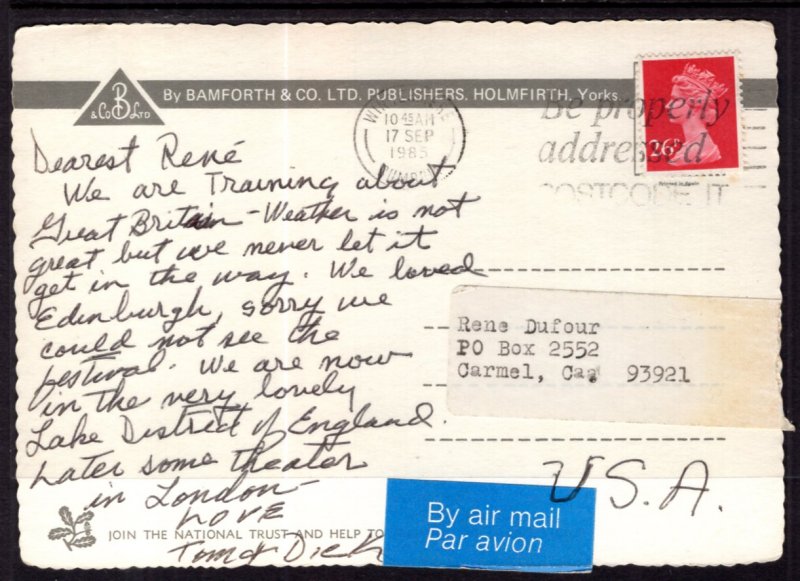 B
& Co LTD
By BAMFORTH & CO. LTD. PUBLISHERS. HOLMFIRTH, Yorks.
10 45 AM
17 SEP
1985
Be properly
addressed
POSTCODE IT
26P
Dearest René
We are Training about
Great Britain - Weather is not
great but we never let it
get in the way. We loved
Edinburgh, sorry we
could not see the
festival. We are now
in the very lovely
Lake District of England.
Later some theater
in London -
LOVE
Tom & Dick
Rene Dufour
PO Box 2552
Carmel, Ca, 93921
U.S.A.
By air mail
Par avion
JOIN THE NATIONAL TRUST AND HELP TO